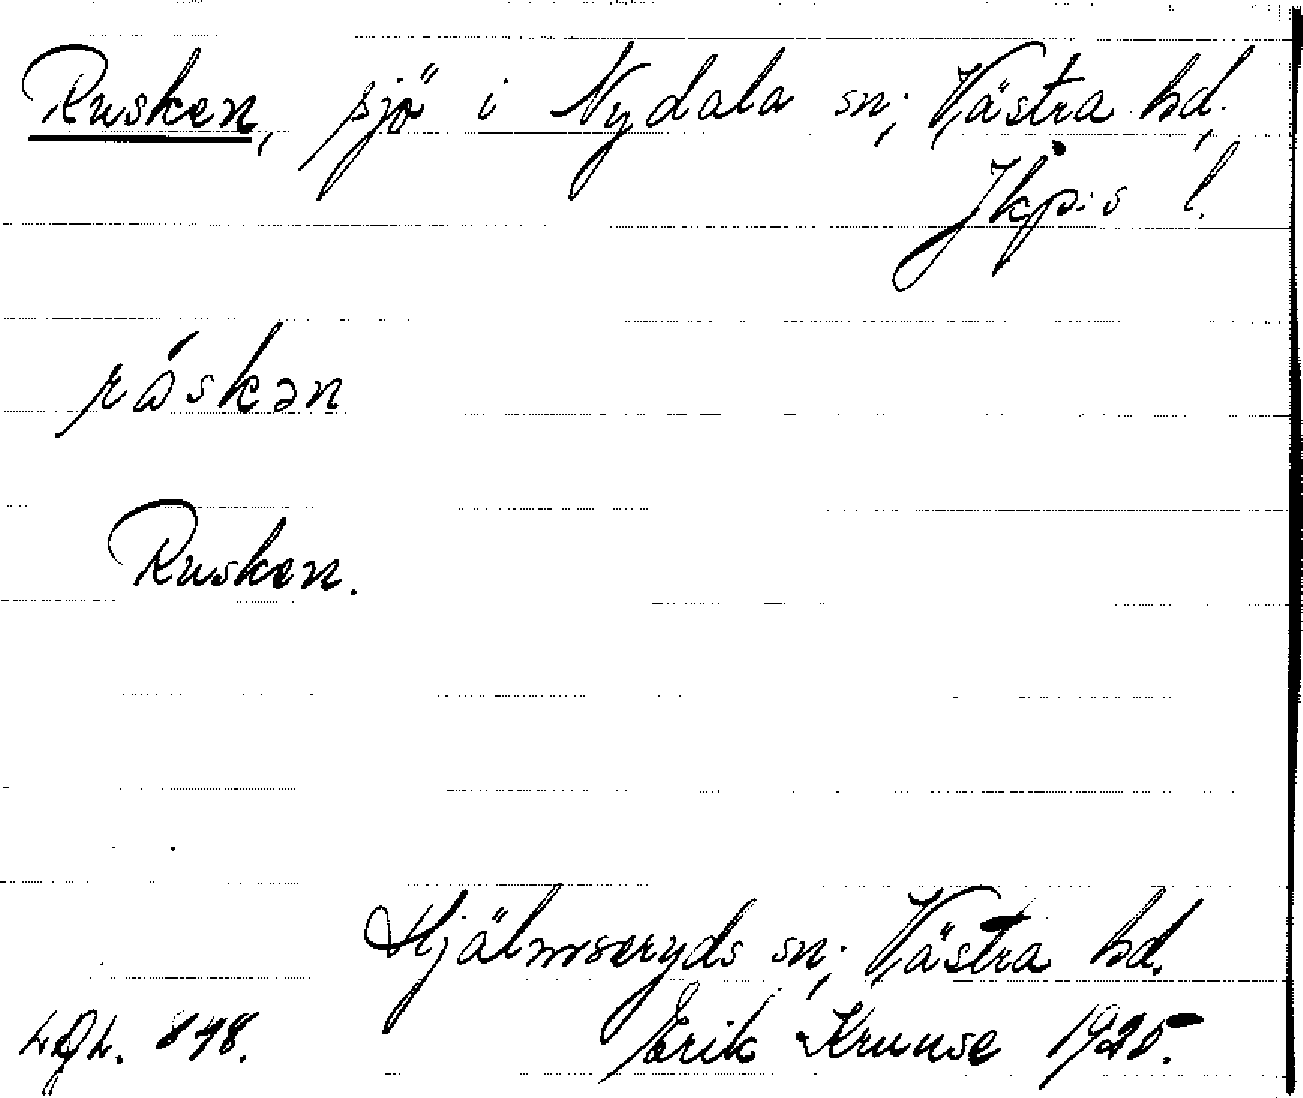 Rusken, sjö i Nydala sn; Västra hd,
Jkp:s l.
råskən
Rusken.
Hjälmseryds sn; Västra hd.
848. Erik Kruuse 1925.